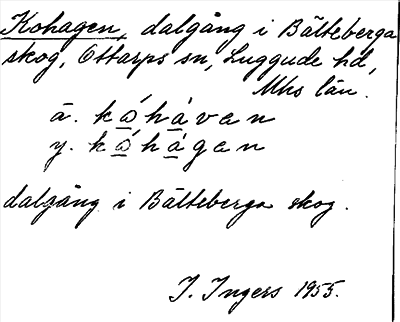 Kohagen, dalgång i Bälteberga
skog, Ottarps sn, Luggude hd,
Mhs län.
ä. kǻhávan
y. kǻhágen
dalgång i Bälteberga skog.
I. Ingers 1955.